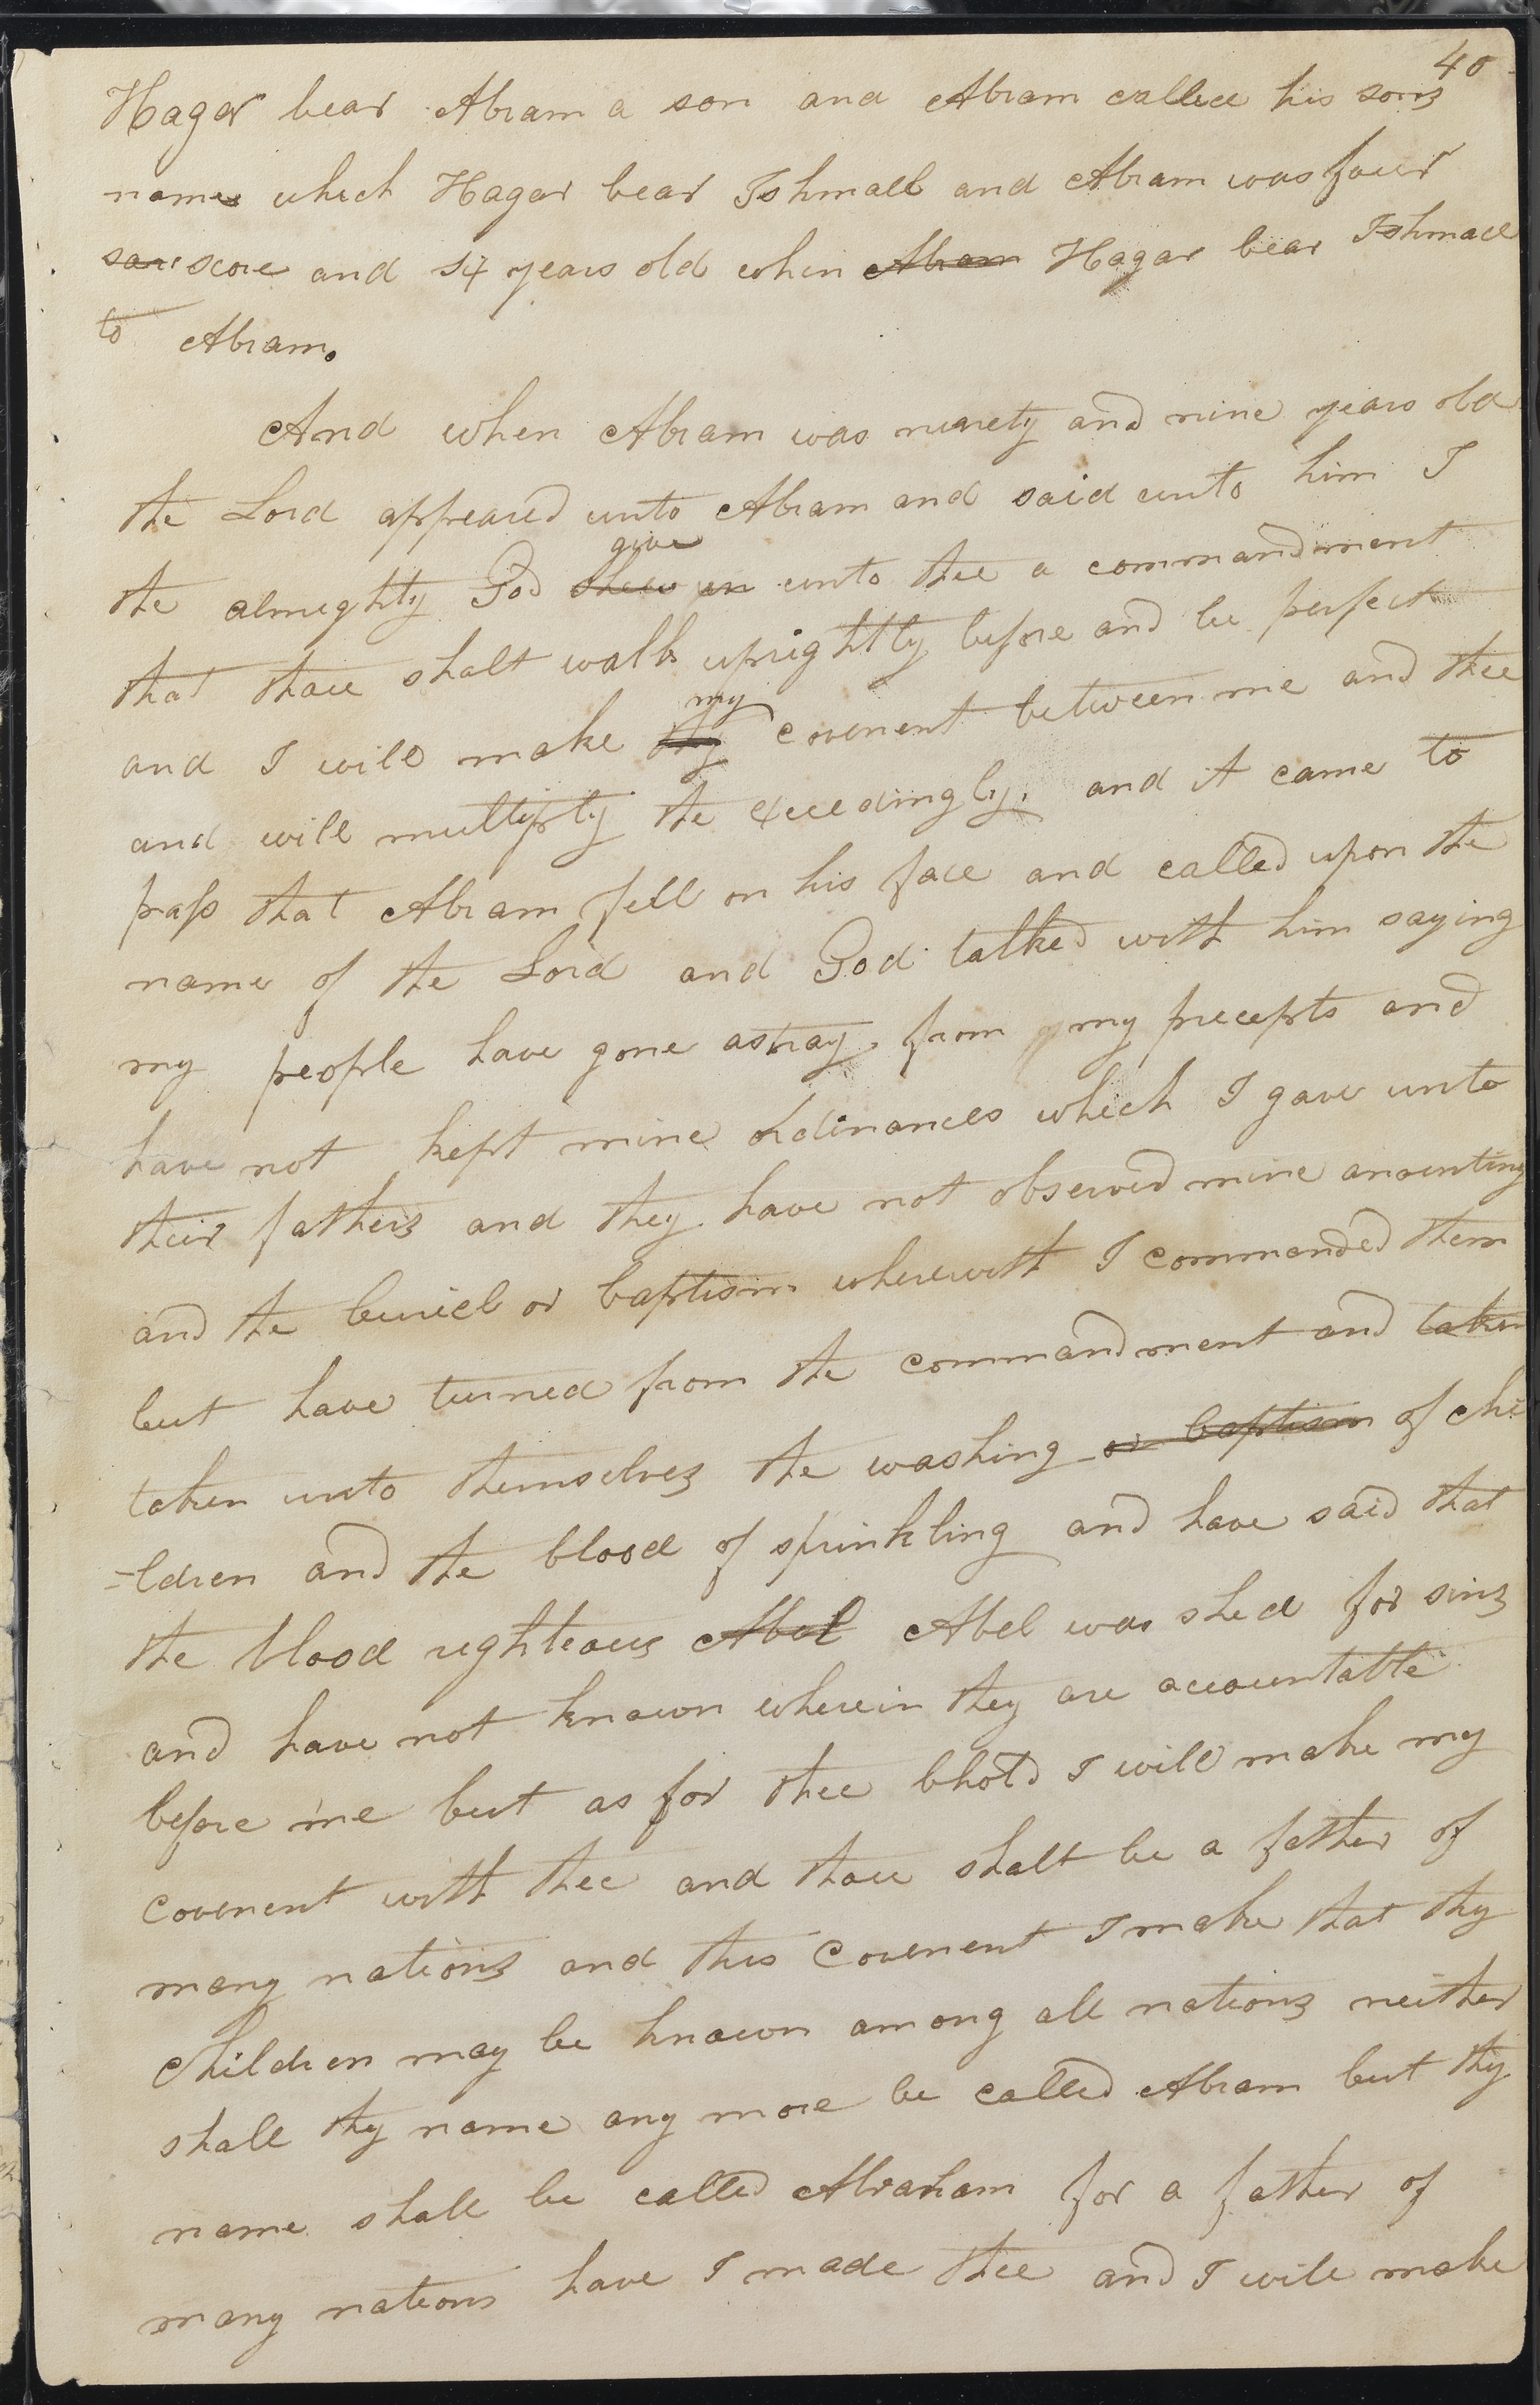 40
Hagar bear Abram a son and Abram called his sons
name which Hagar bear Ishmael and Abram was four
score and six years old when Abram Hagar bear Ishmael
to Abram.
And when Abram was ninety and nine years old
the Lord appeared unto Abram and said unto him I
give
the almighty God shew un unto thee a commandment
that thou shalt walk uprightly before and be perfect
my
and I will make thy covenent between me and thee
and will multiply the exceedingly. and it came to
pass that Abram fell on his face and called upon the
name of the Lord and God talked with him saying
my people have gone astray from my precepts and
have not kept mine ordinances which I gave unto
their fathers and they have not observed mine anointing
and the buriel or baptism wherewith I commanded them
but have turned from the commandment and taken
taken unto themselves the washing or baptism of chi
-ldren and the blood of sprinkling and have said that
the blood righteous Abel Abel was shed for sins
and have not known wherein they are accountable
before me but as for thee bhold I will make my
covenent with thee and thou shalt be a father of
many nations and this covenent I make that thy
children may be known among all nations neither
shall thy name any more be called Abram but thy
name shall be called Abraham for a father of
many nations have I made thee and I will make